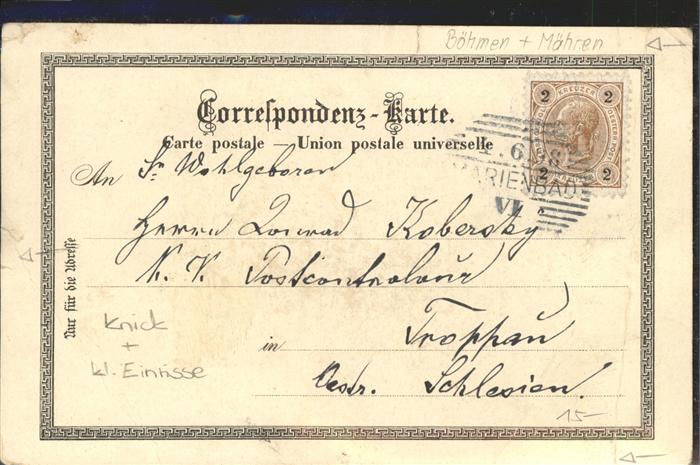 Böhmen + Mähren
Correspondenz-Karte.
Carte postale — Union postale universelle
2 KREUZER 2
2 2
1.6.98
MARIENBAD
VI
An Sr Wohlgeboren
Herrn Konrad Kobersky
K. K. Postcontroleur
in Troppau
Oestr. Schlesien.
Nur für die Adresse
Knick
+
kl. Einrisse
15-